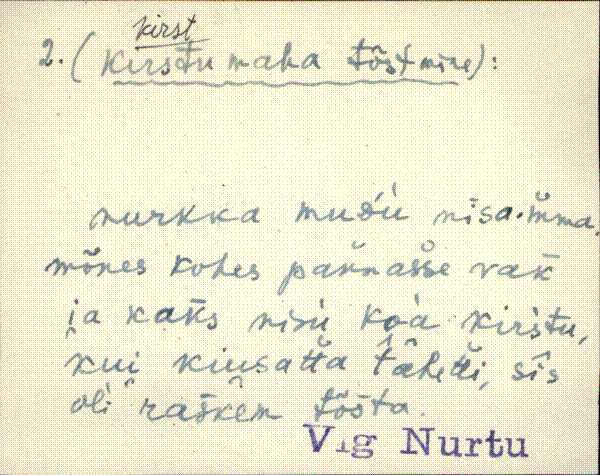 kirst
2. (kirstu maha tõstmine):
nurkka musu nisa.
mõnes kohes pannasse vak
ja kaks nisu koa kirstu,
kui kiusatta tahetti, sis
oli raskem tõsta.
Vig Nurtu